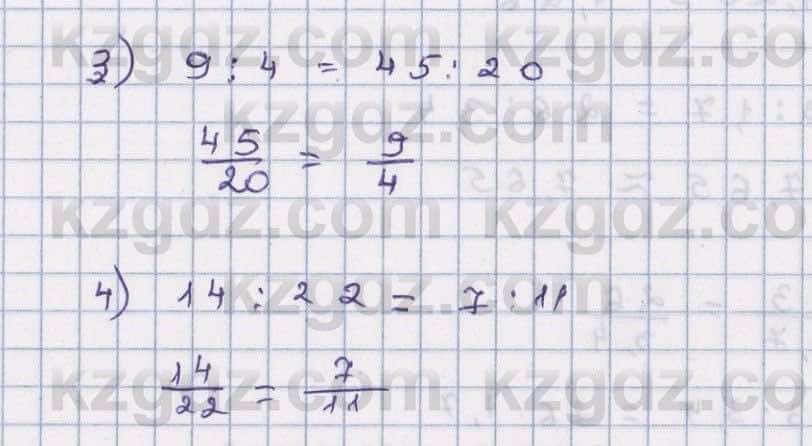 kzgdz.com kzgdz.com
3) 9 : 4 = 45 : 20
kzgdz.com
45/20 = 9/4
kzgdz.com kzgdz.com
kzgdz.com
4) 14 : 22 = 7 : 11
14/22 = 7/11
kzgdz.com kzgdz.com